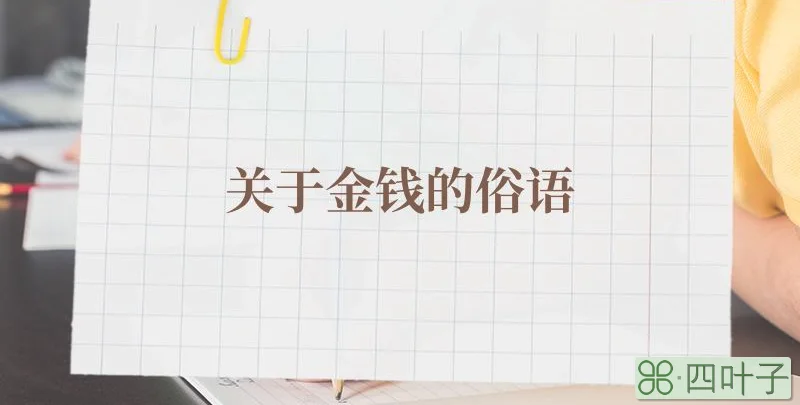 关于金钱的俗语
四叶子